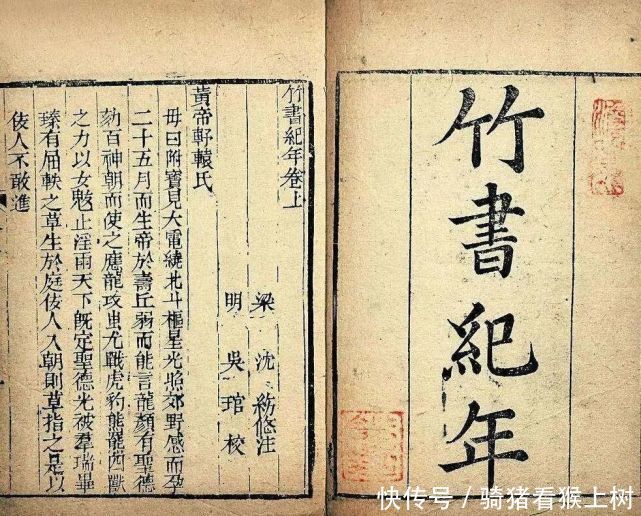 竹書紀年
竹書紀年卷上
梁 沈 約 注
明 吳 琯 校
黃帝軒轅氏
母曰附寶見大電繞北斗樞星光炤郊野感而孕
二十五月而生帝於壽丘弱而能言龍顏有聖德
劾百神朝而使之應龍攻蚩尤戰虎豹熊羆四獸
之力以女魃止淫雨天下既定聖德光被羣瑞畢
臻有屈軼之草生於庭佞人入朝則草指之是以
佞人不敢進
快传号 / 骑猪看猴上树